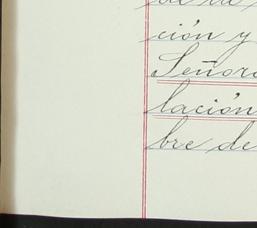 ción y
Señor
lación
bre de